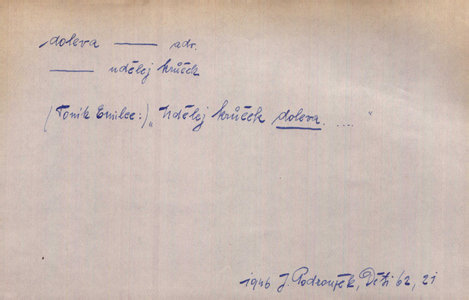 doleva —— adv.
—— udělej krůček
(Toník Emilce:) „Udělej krůček doleva. ...."
1946 J. Podroužek, Děti 62, 21